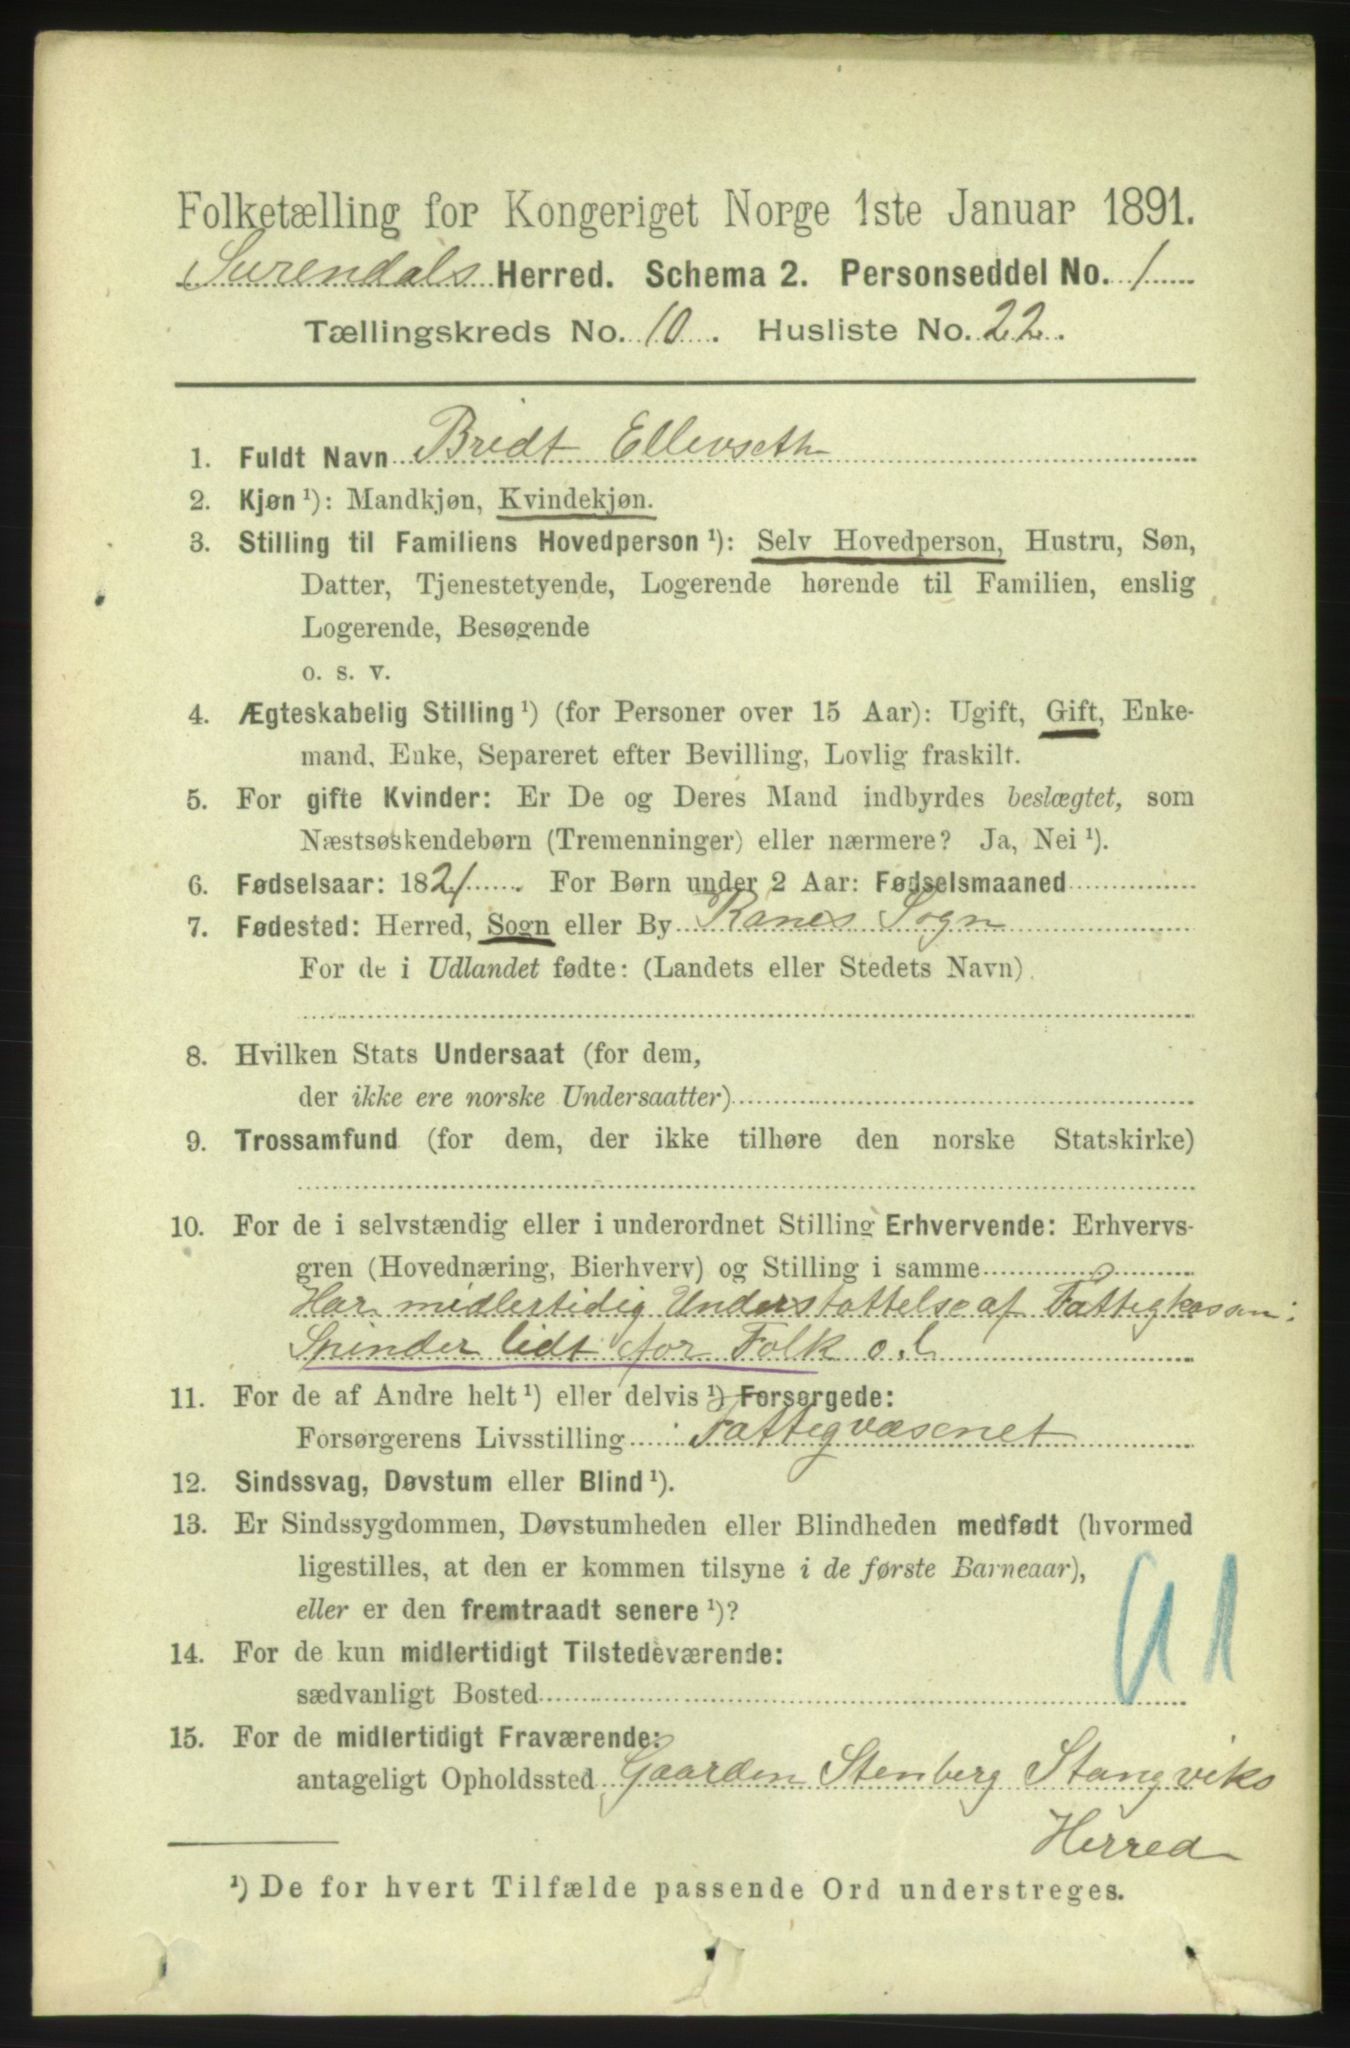 Folketælling for Kongeriget Norge 1ste Januar 1891.
Surendals Herred. Schema 2. Personseddel No. 1
Tællingskreds No. 10. Husliste No. 22.
1. Fuldt Navn Bridt Ellevseth
2. Kjøn ¹): Mandkjøn, Kvindekjøn.
3. Stilling til Familiens Hovedperson ¹): Selv Hovedperson, Hustru, Søn,
Datter, Tjenestetyende, Logerende hørende til Familien, enslig
Logerende, Besøgende
o. s. v.
4. Ægteskabelig Stilling ¹) (for Personer over 15 Aar): Ugift, Gift, Enke-
mand, Enke, Separeret efter Bevilling, Lovlig fraskilt.
5. For gifte Kvinder: Er De og Deres Mand indbyrdes beslægtet, som
Næstsøskendebørn (Tremenninger) eller nærmere? Ja, Nei ¹).
6. Fødselsaar: 1821. For Børn under 2 Aar: Fødselsmaaned
7. Fødested: Herred, Sogn eller By Ranes Sogn
For de i Udlandet fødte: (Landets eller Stedets Navn)
8. Hvilken Stats Undersaat (for dem,
der ikke ere norske Undersaatter)
9. Trossamfund (for dem, der ikke tilhøre den norske Statskirke)
10. For de i selvstændig eller i underordnet Stilling Erhvervende: Erhvervs-
gren (Hovednæring, Bierhverv) og Stilling i samme
Har midlertidig Understøttelse af Fattigkassen:
Spinder lidt for Folk o.l
11. For de af Andre helt ¹) eller delvis ¹) Forsørgede:
Forsørgerens Livsstilling Fattigvæsenet
12. Sindssvag, Døvstum eller Blind ¹).
13. Er Sindssygdommen, Døvstumheden eller Blindheden medfødt (hvormed
ligestilles, at den er kommen tilsyne i de første Barneaar),
eller er den fremtraadt senere ¹)?
14. For de kun midlertidigt Tilstedeværende:
sædvanligt Bosted
15. For de midlertidigt Fraværende:
antageligt Opholdssted Gaarden Stenberg Stangviks
Herred
¹) De for hvert Tilfælde passende Ord understreges.